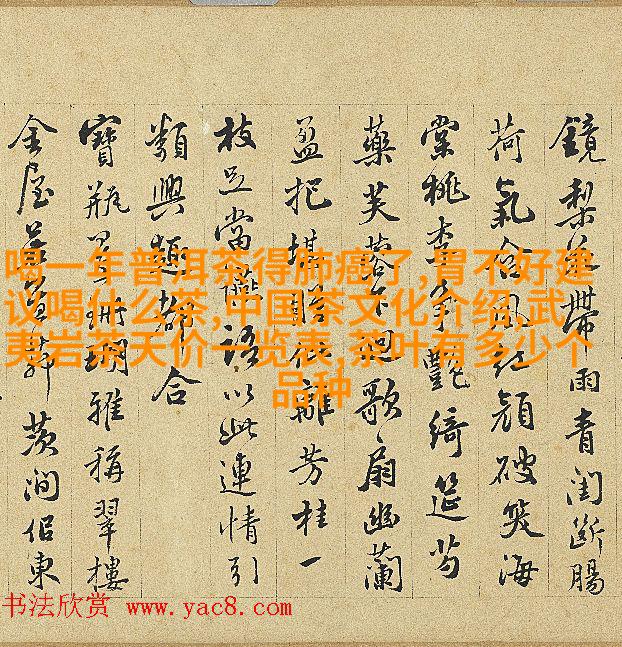 鏡梨帶雨青閨斷腸
荷氣風紅顏破笑海
棠桃李爭艷綺筵芍
藥芙蓉下迴歌扇幽蘭
盈把堪離芳桂一
枝足當語以此連情引
類興趣都合
寶瓶珊瑚雅稱翠樓
金屋澗侶東
喝一年普洱茶得肺癌了,胃不好建
议喝什么茶,中国茶文化介绍,武
夷岩茶天价一览表,茶叶有多少个
品种
书法欣赏 www.yac8.com